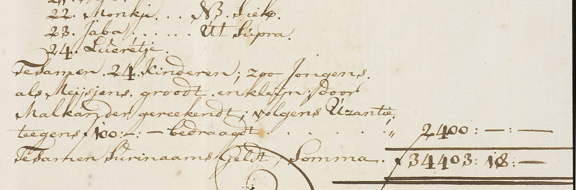 22. Monkje. . . . NB. Siek.
23. Jaba . . . . . . Ut Supra.
24. Lucretje.
Tesamen 24. Kinderen, zoo Jongens.
als Meijsjens, groodt en kleijn, door
Malkanden gereekendt, volgens Uzantie,
teegens ƒ100:-:- bedraagdt . . . . . " 2400:-:-
Tesamen Surinaams Geldt, Somma. ƒ34403:18:-